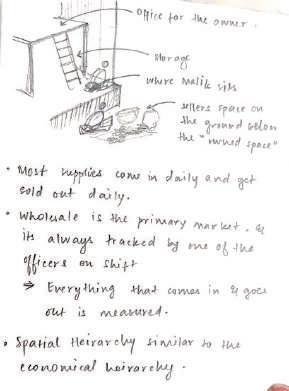 office for the owner.
storage
where malik sits
sellers space on
the ground below
the "owned space"
• Most supplies come in daily and get
sold out daily.
• Wholesale is the primary market. &
its always tracked by one of the
officers on shift
⇒ Everything that comes in & goes
out is measured.
• Spatial Heirarchy similar to the
economical heirarchy.